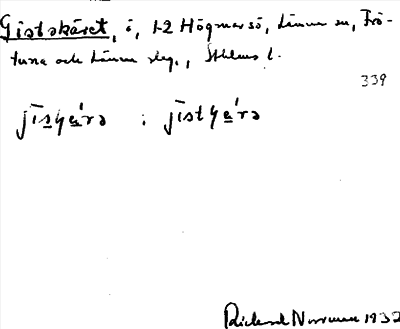 Gistskäret, i, 12 Högmarsö, Länna sn, Frö-
tuna och Länna slg., Sthlms l.
339
jīsɥá̱rə ; jīstɥá̱rə
Rickard Norman 1932